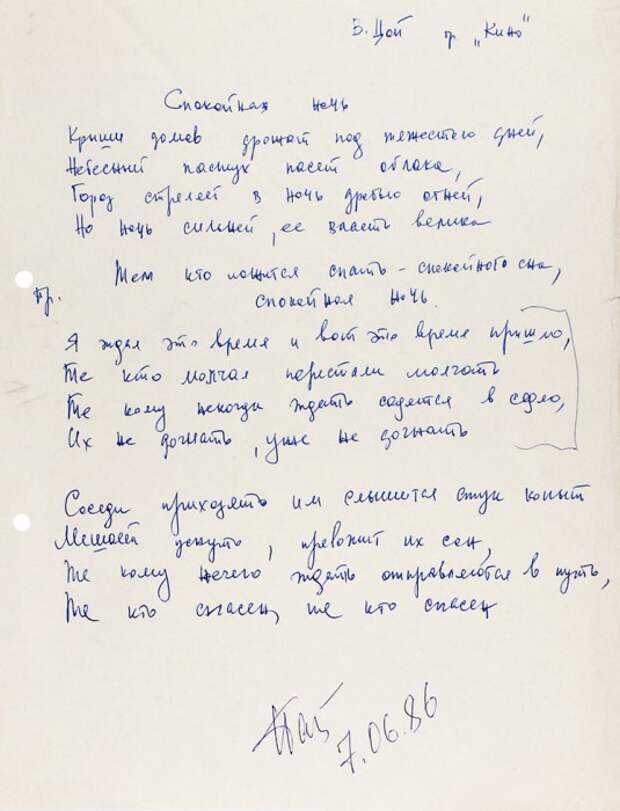 В. Цой гр „Кино"
Спокойная ночь
Крыши домов дрожат под тяжестью дней,
Небесный пастух пасет облака,
Город стреляет в ночь дробью огней,
Но ночь сильней, ее власть велика
Тем кто ложится спать – спокойного сна,
Пр. спокойная ночь.
Я ждал это время и вот это время пришло,
Те кто молчал перестали молчать
Те кому некогда ждать садятся в седло,
Их не догнать, уже не догнать
Соседи приходят им слышится стук копыт
Мешает уснуть, тревожит их сон,
Те кому нечего ждать отправляются в путь,
Те кто спасен, те кто спасен
7.06.86